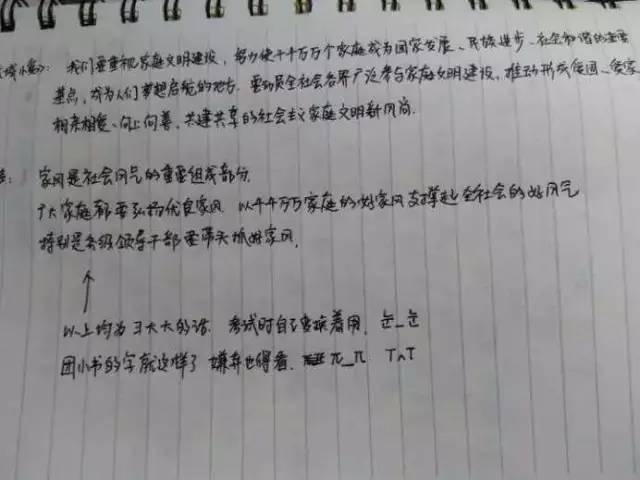 我们要重视家庭文明建设，努力使千千万万个家庭成为国家发展、民族进步、社会和谐的重要
基点，成为人们梦想启航的地方。要动员全社会各界广泛参与家庭文明建设，推动形成爱国、爱家
相亲相爱、向上向善、共建共享的社会主义家庭文明新风尚.
家风是社会风气的重要组成部分.
广大家庭都要弘扬优良家风 以千千万万家庭的好家风支撑起全社会的好风气
特别是各级领导干部要带头抓好家风.
以上均为习大大的话. 考试时自己变换着用. 눈_눈
团小书的字就这样了 嫌弃也得看. π_π TnT